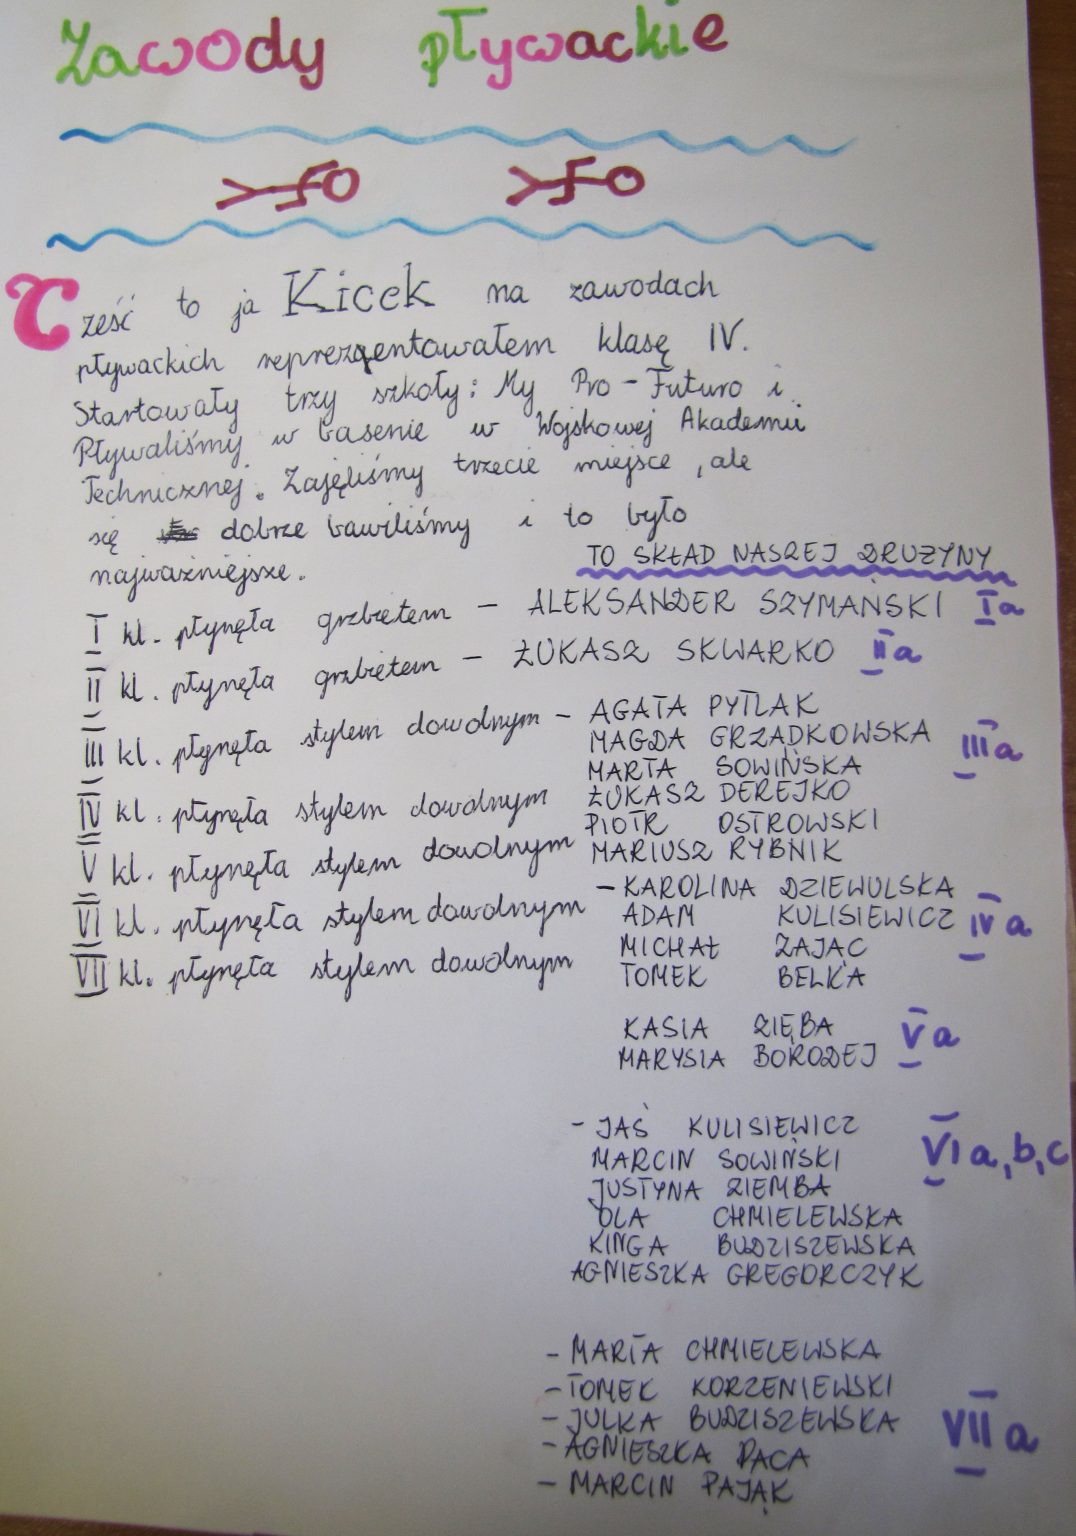 Zawody pływackie
Cześć to ja Kicek na zawodach
pływackich reprezentowałem klasę IV.
Startowały trzy szkoły: My Pro-Futuro i
Pływaliśmy w basenie w Wojskowej Akademii
Technicznej. Zajęliśmy trzecie miejsce, ale
się dobrze bawiliśmy i to było
najważniejsze.
TO SKŁAD NASZEJ DRUŻYNY
I kl. płynęła grzbietem - ALEKSANDER SZYMAŃSKI Ia
II kl. płynęła grzbietem - ŁUKASZ SKWARKO IIa
III kl. płynęła stylem dowolnym - AGATA PYTLAK
MAGDA GRZĄDKOWSKA IIIa
MARTA SOWIŃSKA
IV kl. płynęła stylem dowolnym ŁUKASZ DEREJKO
PIOTR OSTROWSKI
V kl. płynęła stylem dowolnym MARIUSZ RYBNIK
- KAROLINA DZIEWULSKA
VI kl. płynęła stylem dowolnym ADAM KULISIEWICZ IVa
MICHAŁ ZAJĄC
VII kl. płynęła stylem dowolnym TOMEK BELKA
KASIA ZIĘBA Va
MARYSIA BORODEJ
- JAŚ KULISIEWICZ
MARCIN SOWIŃSKI VI a,b,c
JUSTYNA ZIEMBA
OLA CHMIELEWSKA
KINGA BUDZISZEWSKA
AGNIESZKA GREGORCZYK
- MARTA CHMIELEWSKA
- TOMEK KORZENIEWSKI
- JULKA BUDZISZEWSKA VIIa
- AGNIESZKA DACA
- MARCIN PAJĄK